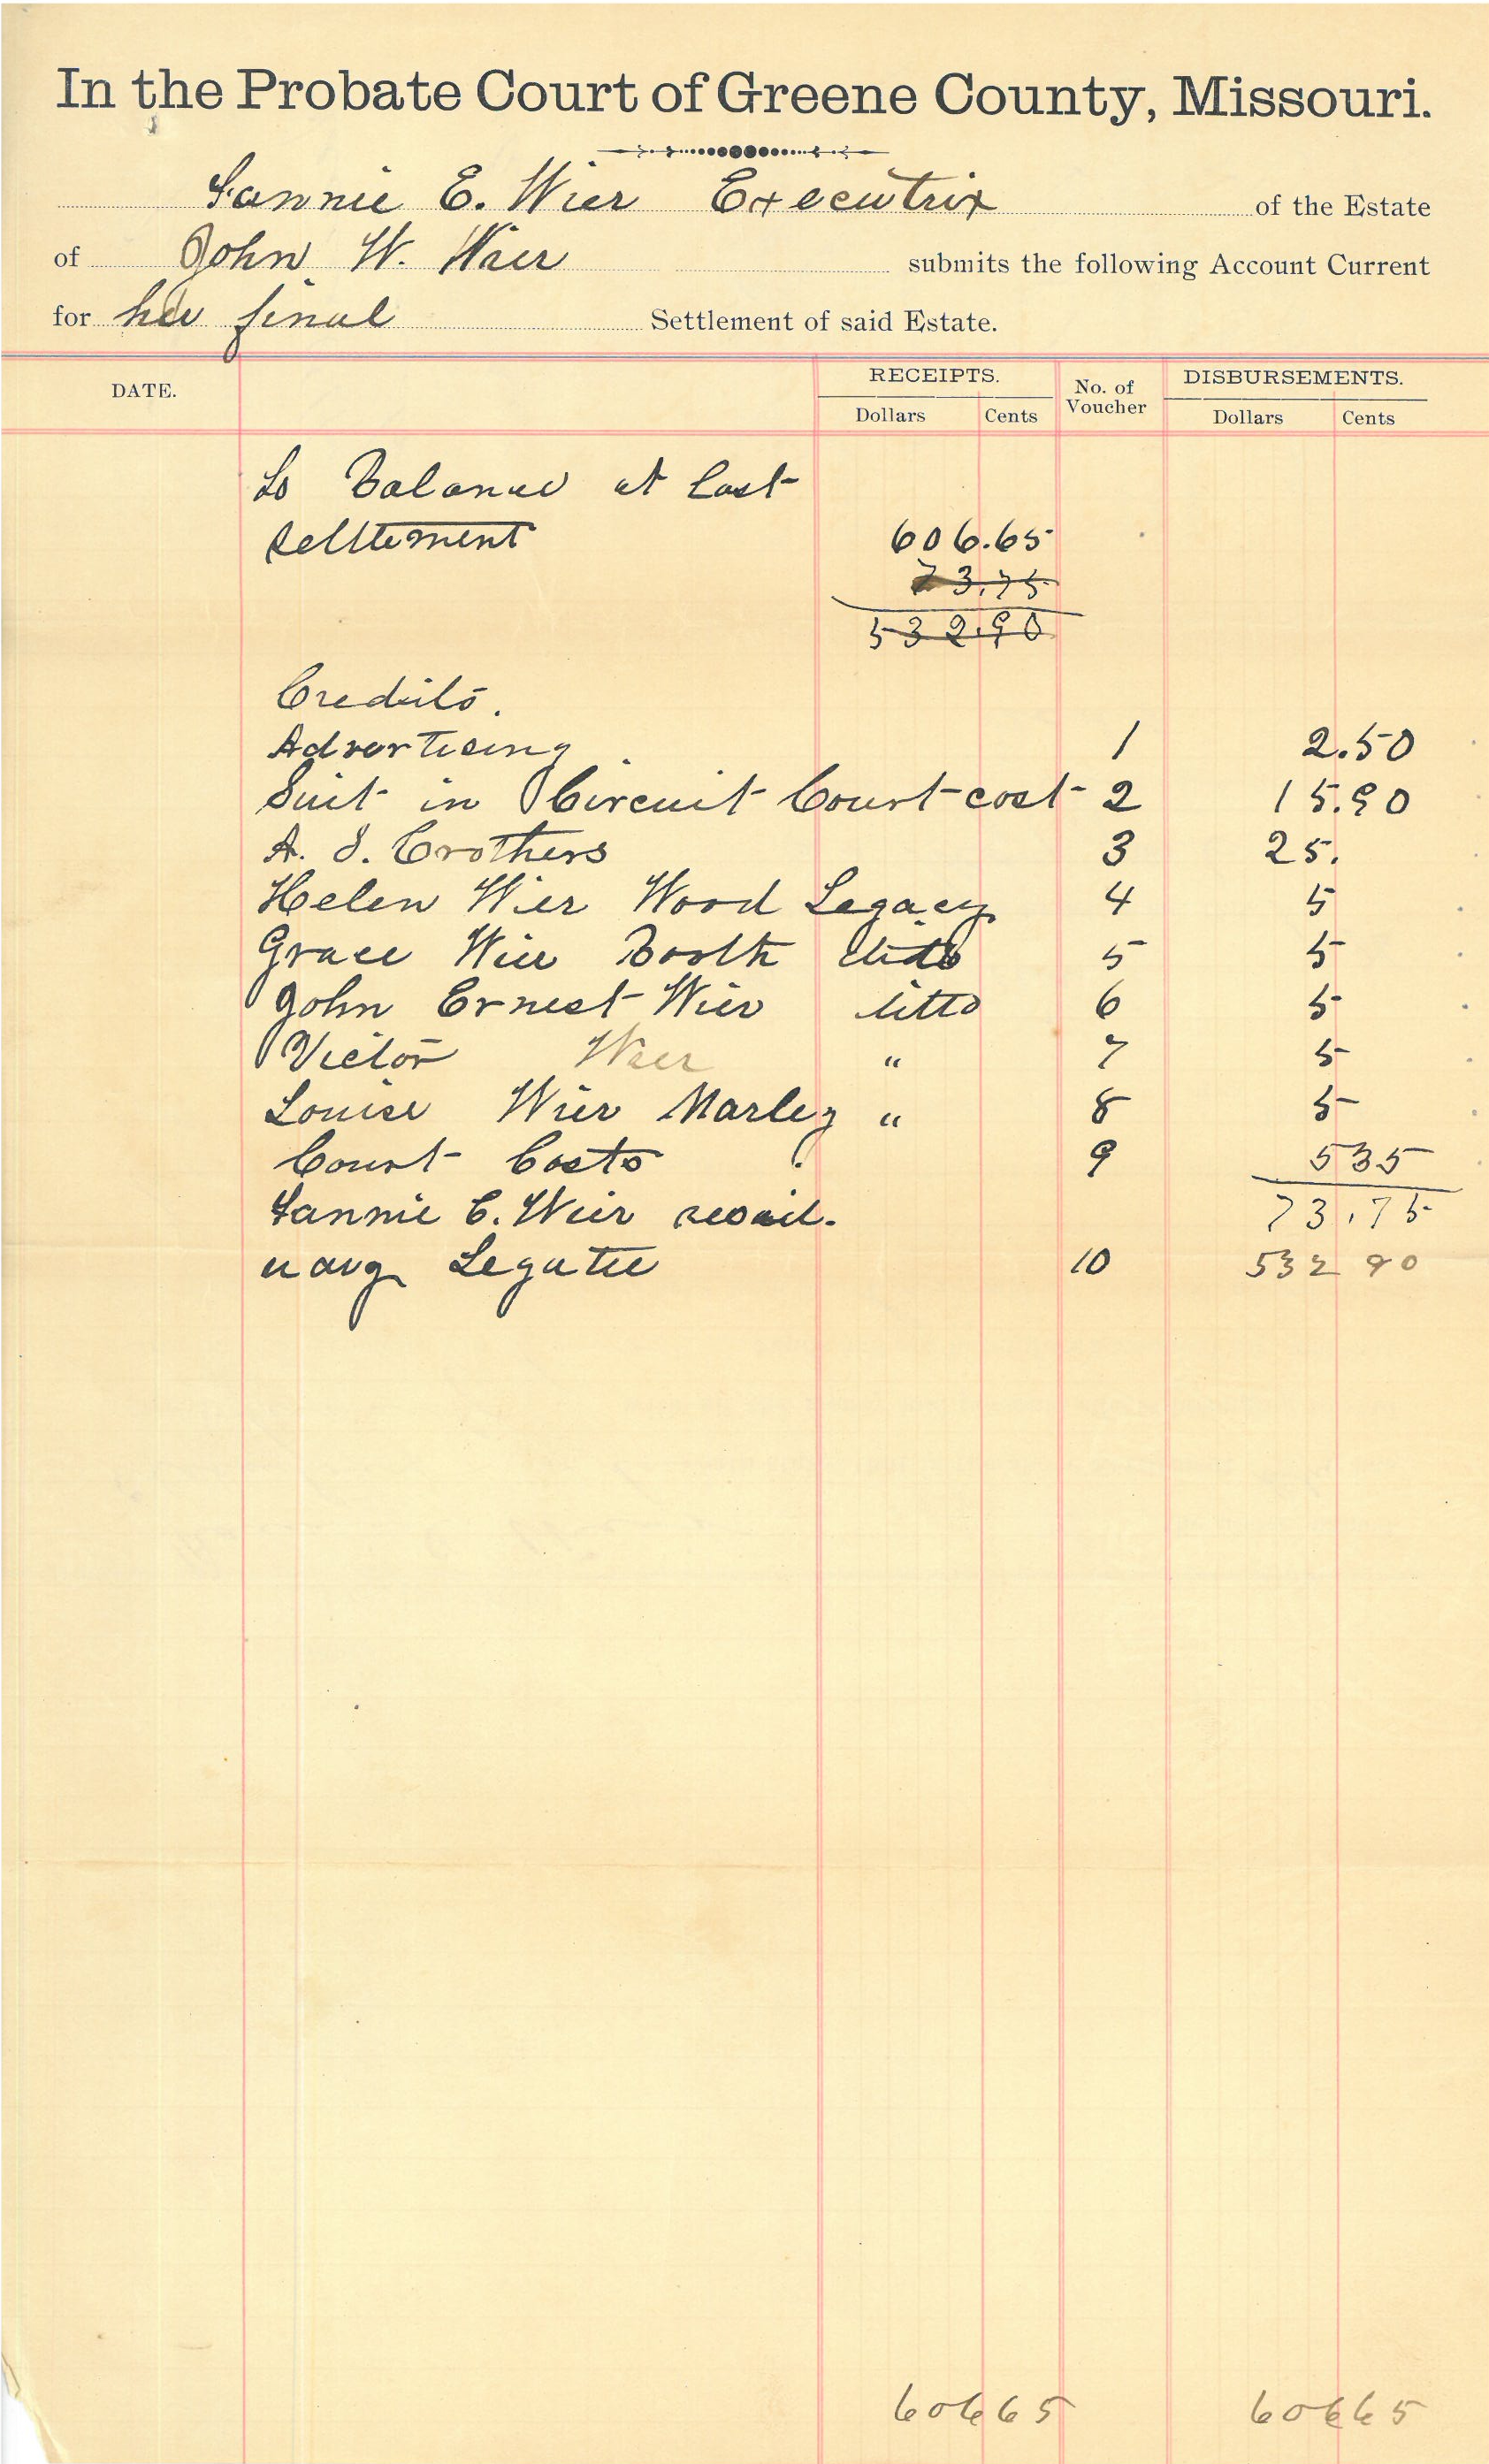 In the Probate Court of Greene County, Missouri.
Fannie E. Wier Executrix of the Estate
of John W. Wier submits the following Account Current
for her final Settlement of said Estate.
DATE. RECEIPTS. No. of Voucher DISBURSEMENTS.
Dollars Cents Dollars Cents
To Balance at last
settlement 606.65
73.75
532.90
Credits.
Advertising 1 2.50
Suit in Circuit Court cost 2 15.90
A. S. Crothers 3 25.
Helen Wier Wood Legacy 4 5
Grace Wier Booth ditto 5 5
John Ernest Wier ditto 6 5
Victor Wier " 7 5
Louise Wier Marley " 8 5
Court Costs 9 5 35
73.75
Fannie E. Wier resid-
uary Legatee 10 532 90
606 65 606 65